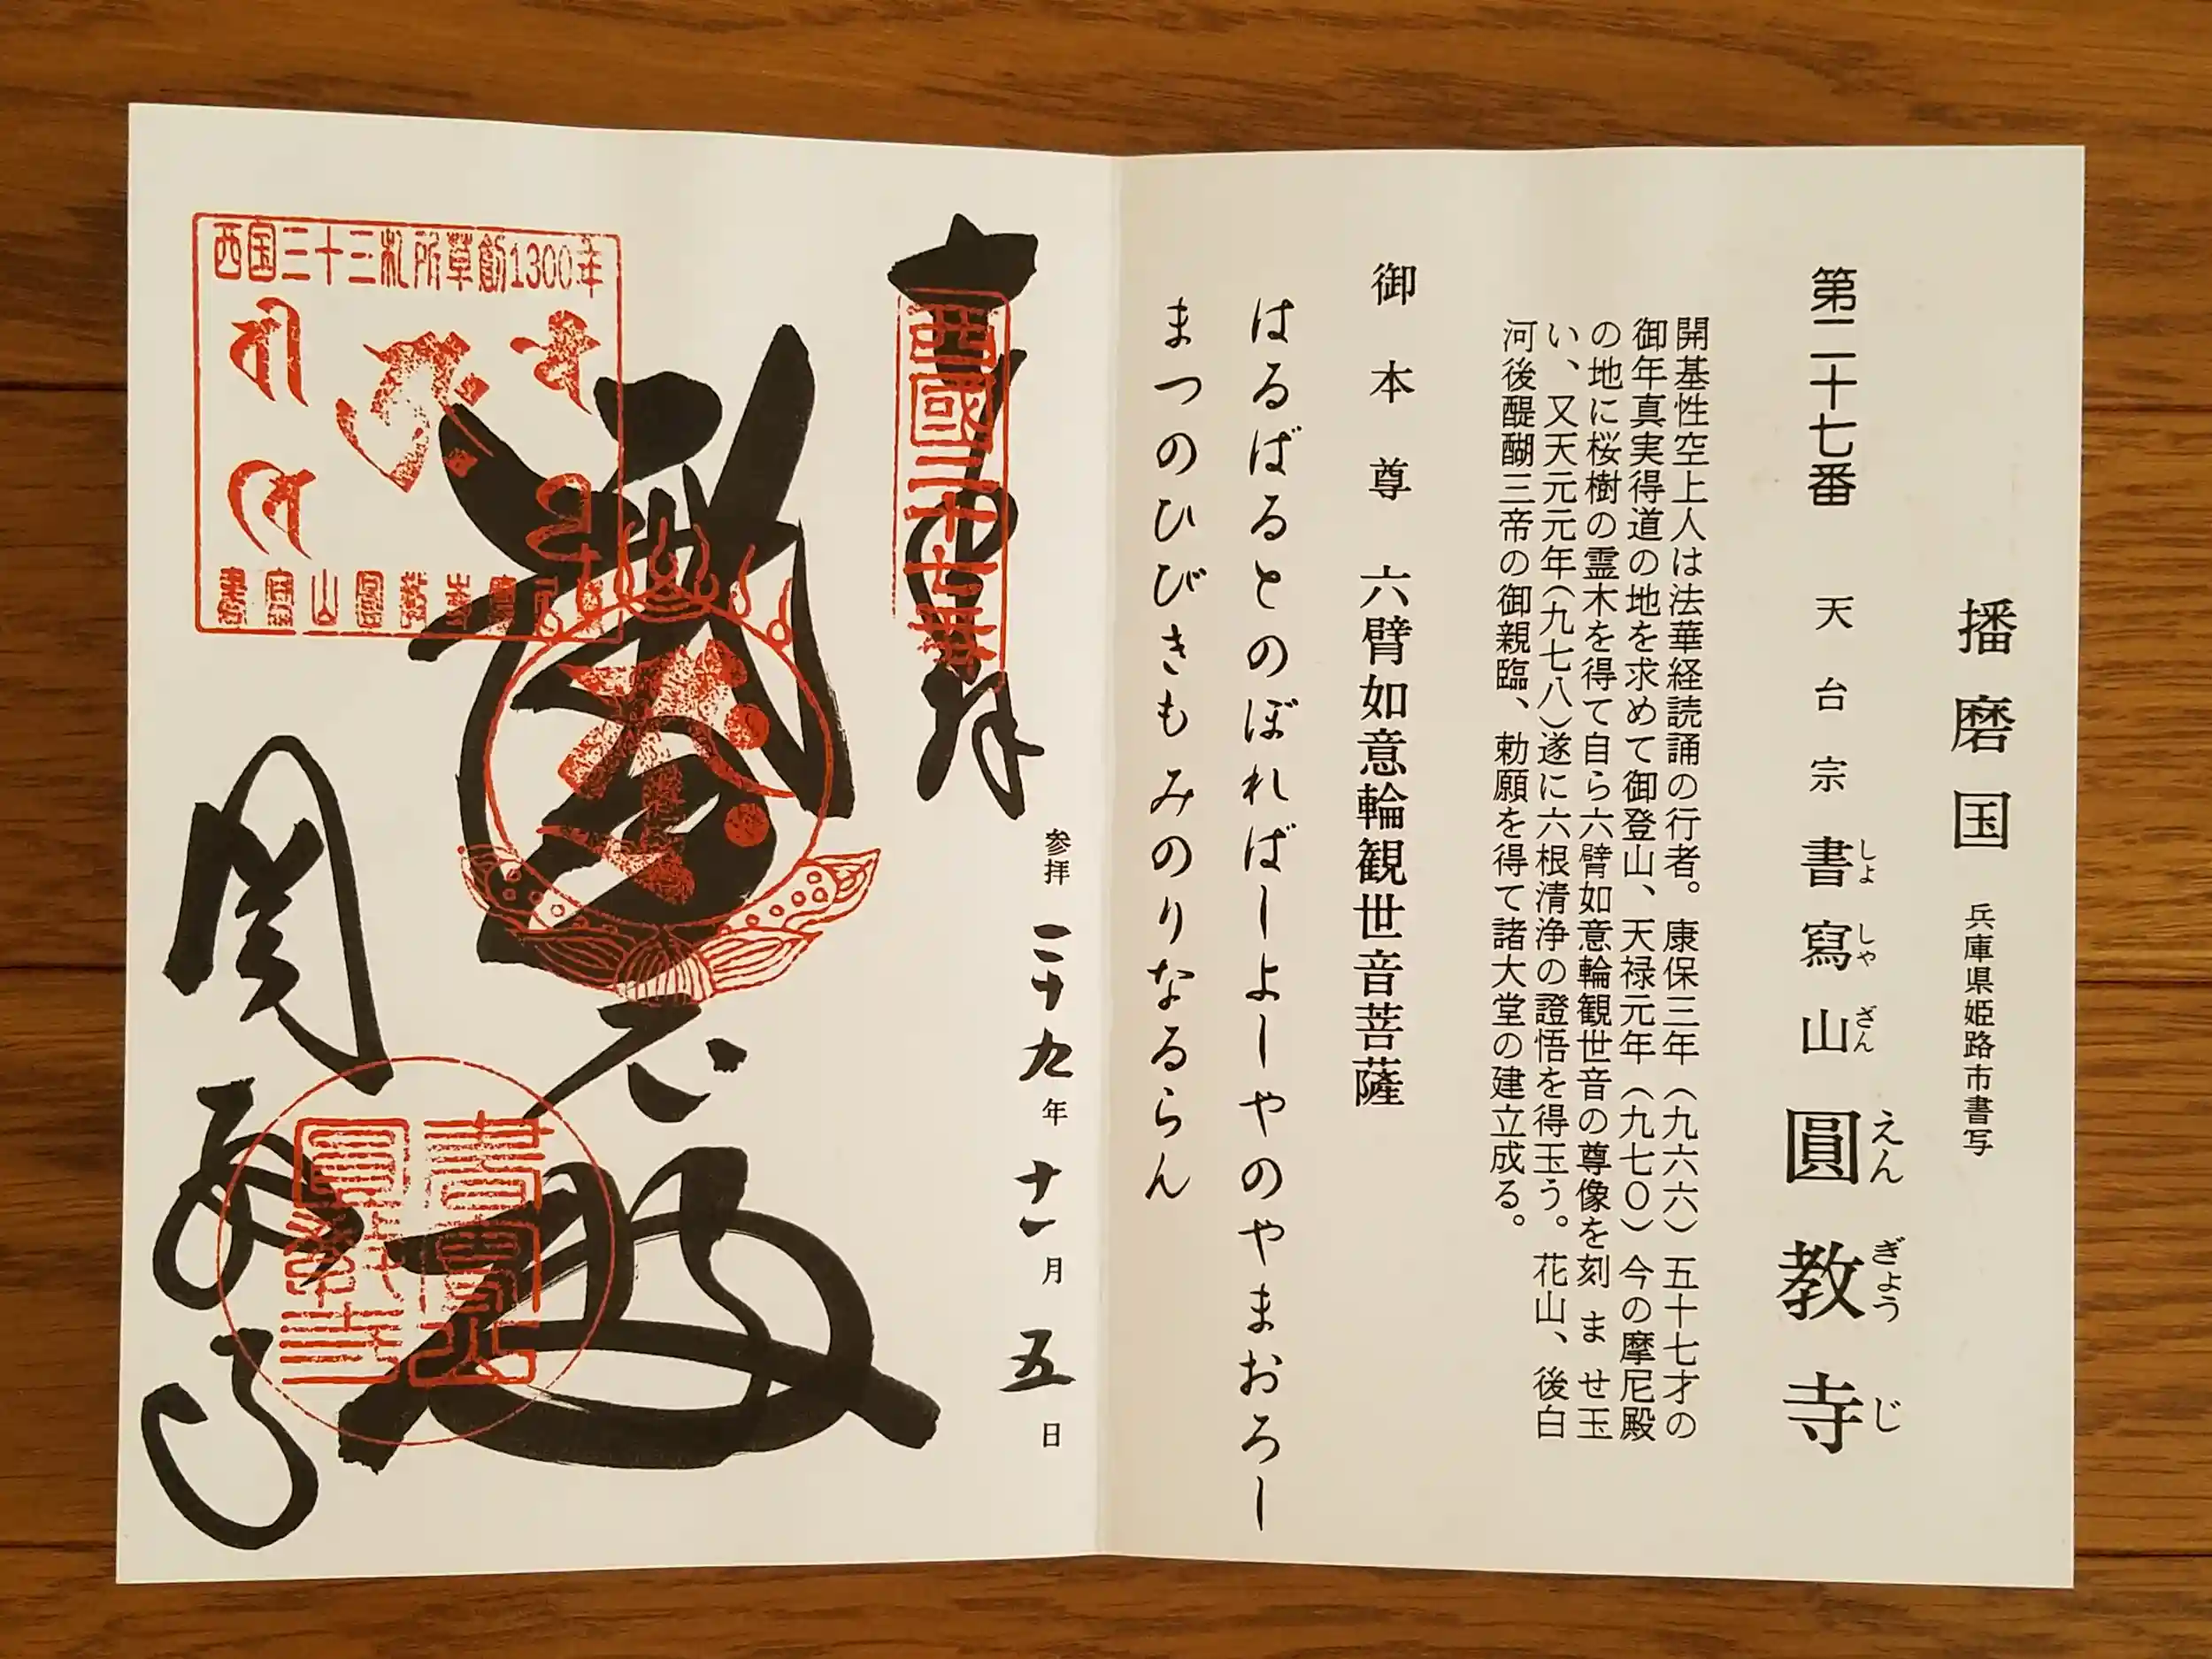 播磨国 兵庫県姫路市書写
第二十七番 天台宗 書寫山 圓教寺
しよ しや ざん えん ぎょう じ
開基性空上人は法華経読誦の行者。康保三年(九六六)五十七才の
御年真実得道の地を求めて御登山、天禄元年(九七〇)今の摩尼殿
の地に桜樹の霊木を得て自ら六臂如意輪観世音の尊像を刻ませ玉
い、又天元元年(九七八)遂に六根清浄の證悟を得玉う。花山、後白
河後醍醐三帝の御親臨、勅願を得て諸大堂の建立成る。
御本尊 六臂如意輪観世音菩薩
はるばるとのぼればしよしやのやまおろし
まつのひびきもみのりなるらん
奉拝
西國二十七番
参拝 二十九年 十一月 五日
西国三十三札所草創1300年
書寫山圓教寺
圓教寺
書寫山
圓教寺